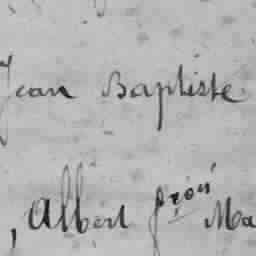 Jean Baptiste
, Albert Ma